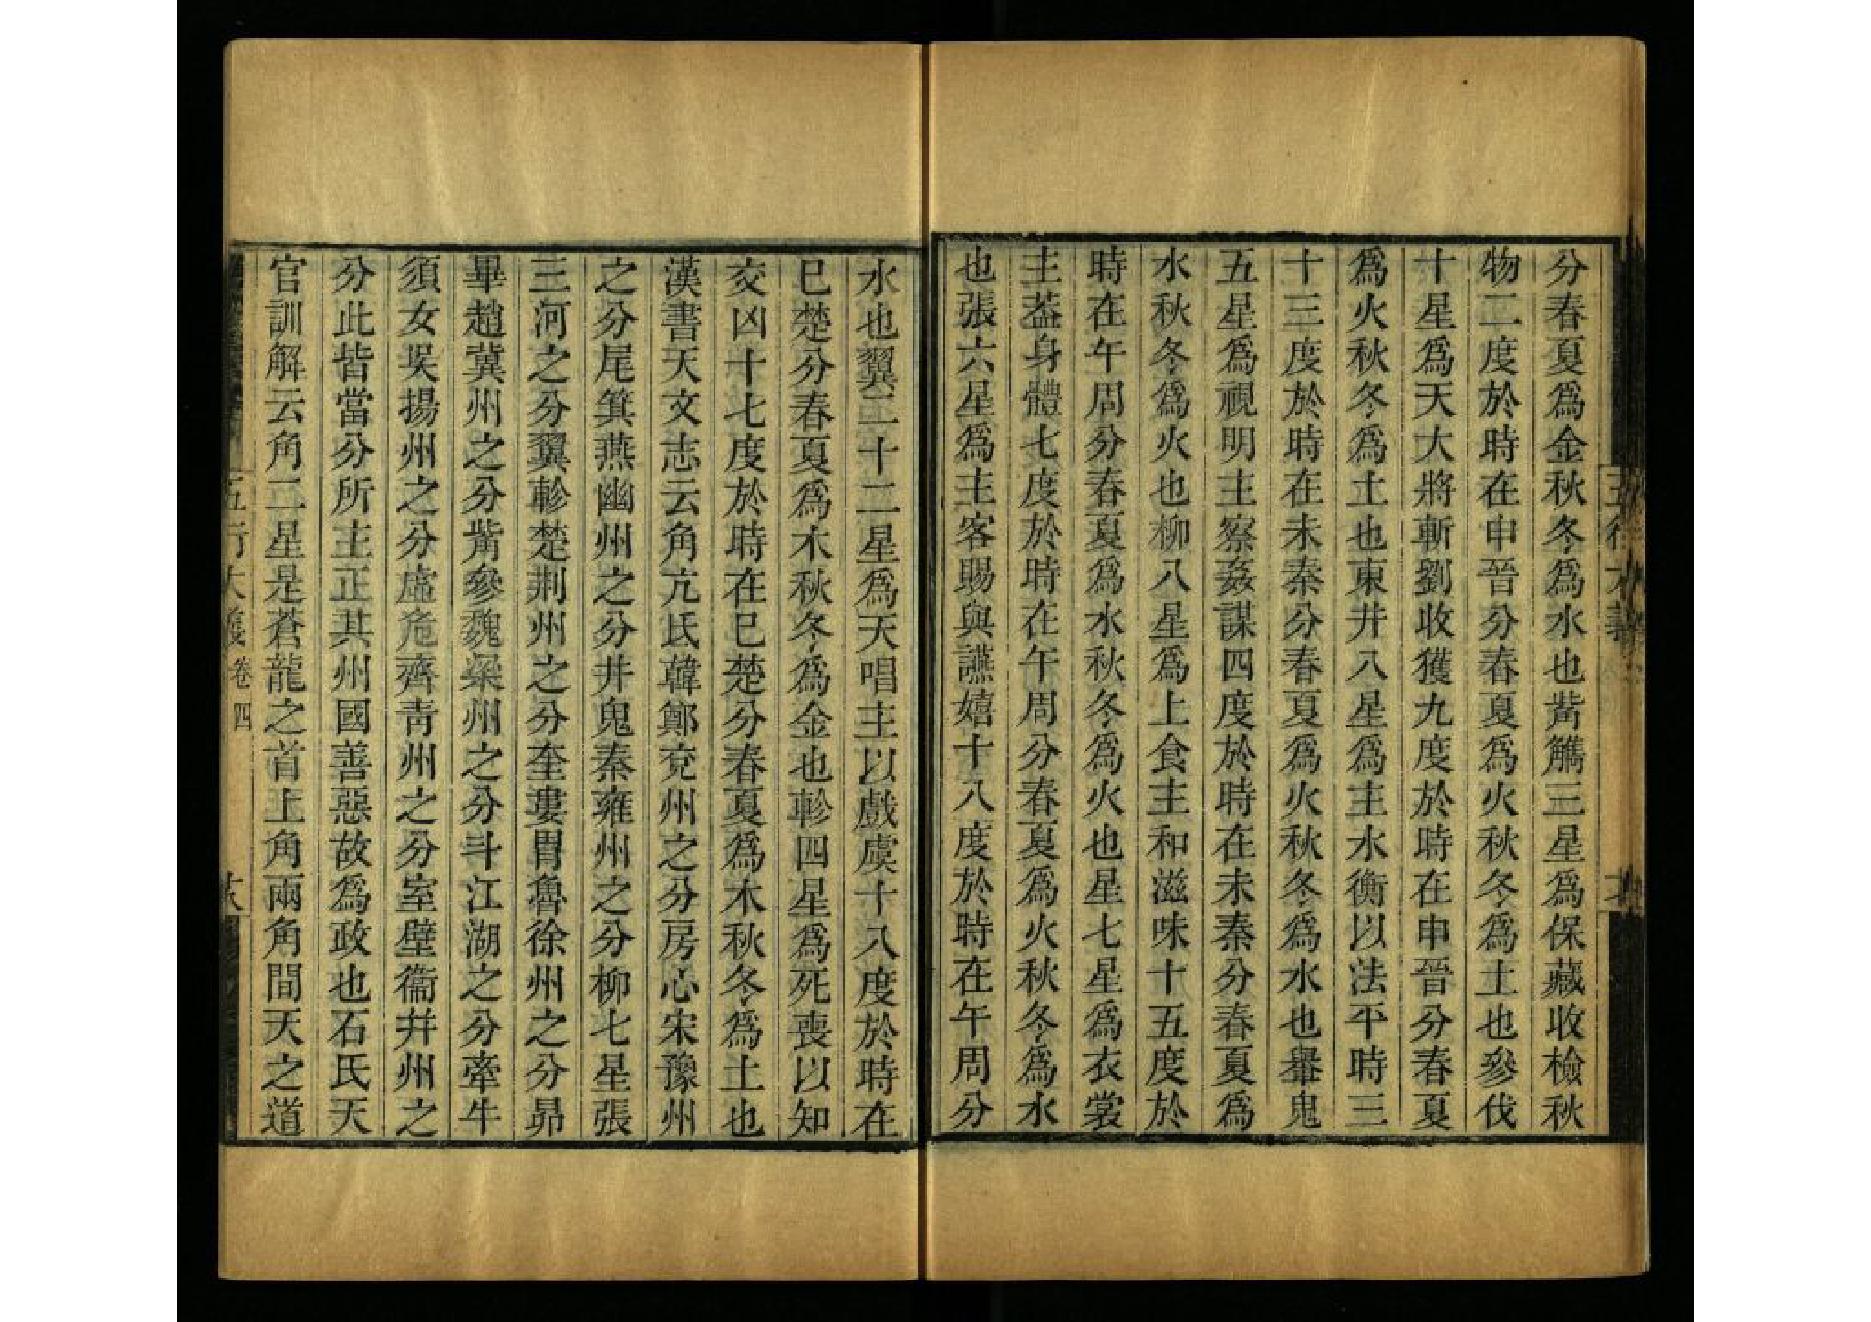 分春夏爲金秋冬爲水也觜觿三星爲保藏收檢秋
物二度於時在申晉分春夏爲火秋冬爲土也參伐
十星爲天大將斬劉收獲九度於時在申晉分春夏
爲火秋冬爲土也東井八星爲主水衡以法平時三
十三度於時在未秦分春夏爲火秋冬爲水也轝鬼
五星爲視明主察姦謀四度於時在未秦分春夏爲
水秋冬爲火也柳八星爲上食主和滋味十五度於
時在午周分春夏爲水秋冬爲火也星七星爲衣裳
主葢身體七度於時在午周分春夏爲火秋冬爲水
也張六星爲主客賜與讌嬉十八度於時在午周分
水也翼二十二星爲天唱主以戲虞十八度於時在
巳楚分春夏爲木秋冬爲金也軫四星爲死喪以知
交凶十七度於時在巳楚分春夏爲木秋冬爲土也
漢書天文志云角亢氐韓鄭兗州之分房心宋豫州
之分尾箕燕幽州之分井鬼秦雍州之分柳七星張
三河之分翼軫楚荆州之分奎婁胃魯徐州之分昴
畢趙冀州之分觜參魏梁州之分斗江湖之分牽牛
須女吳揚州之分虛危齊青州之分室壁衞幷州之
分此皆當分所主正其州國善惡故爲政也石氏天
官訓解云角二星是蒼龍之首上角兩角間天之道
五行大義 卷四